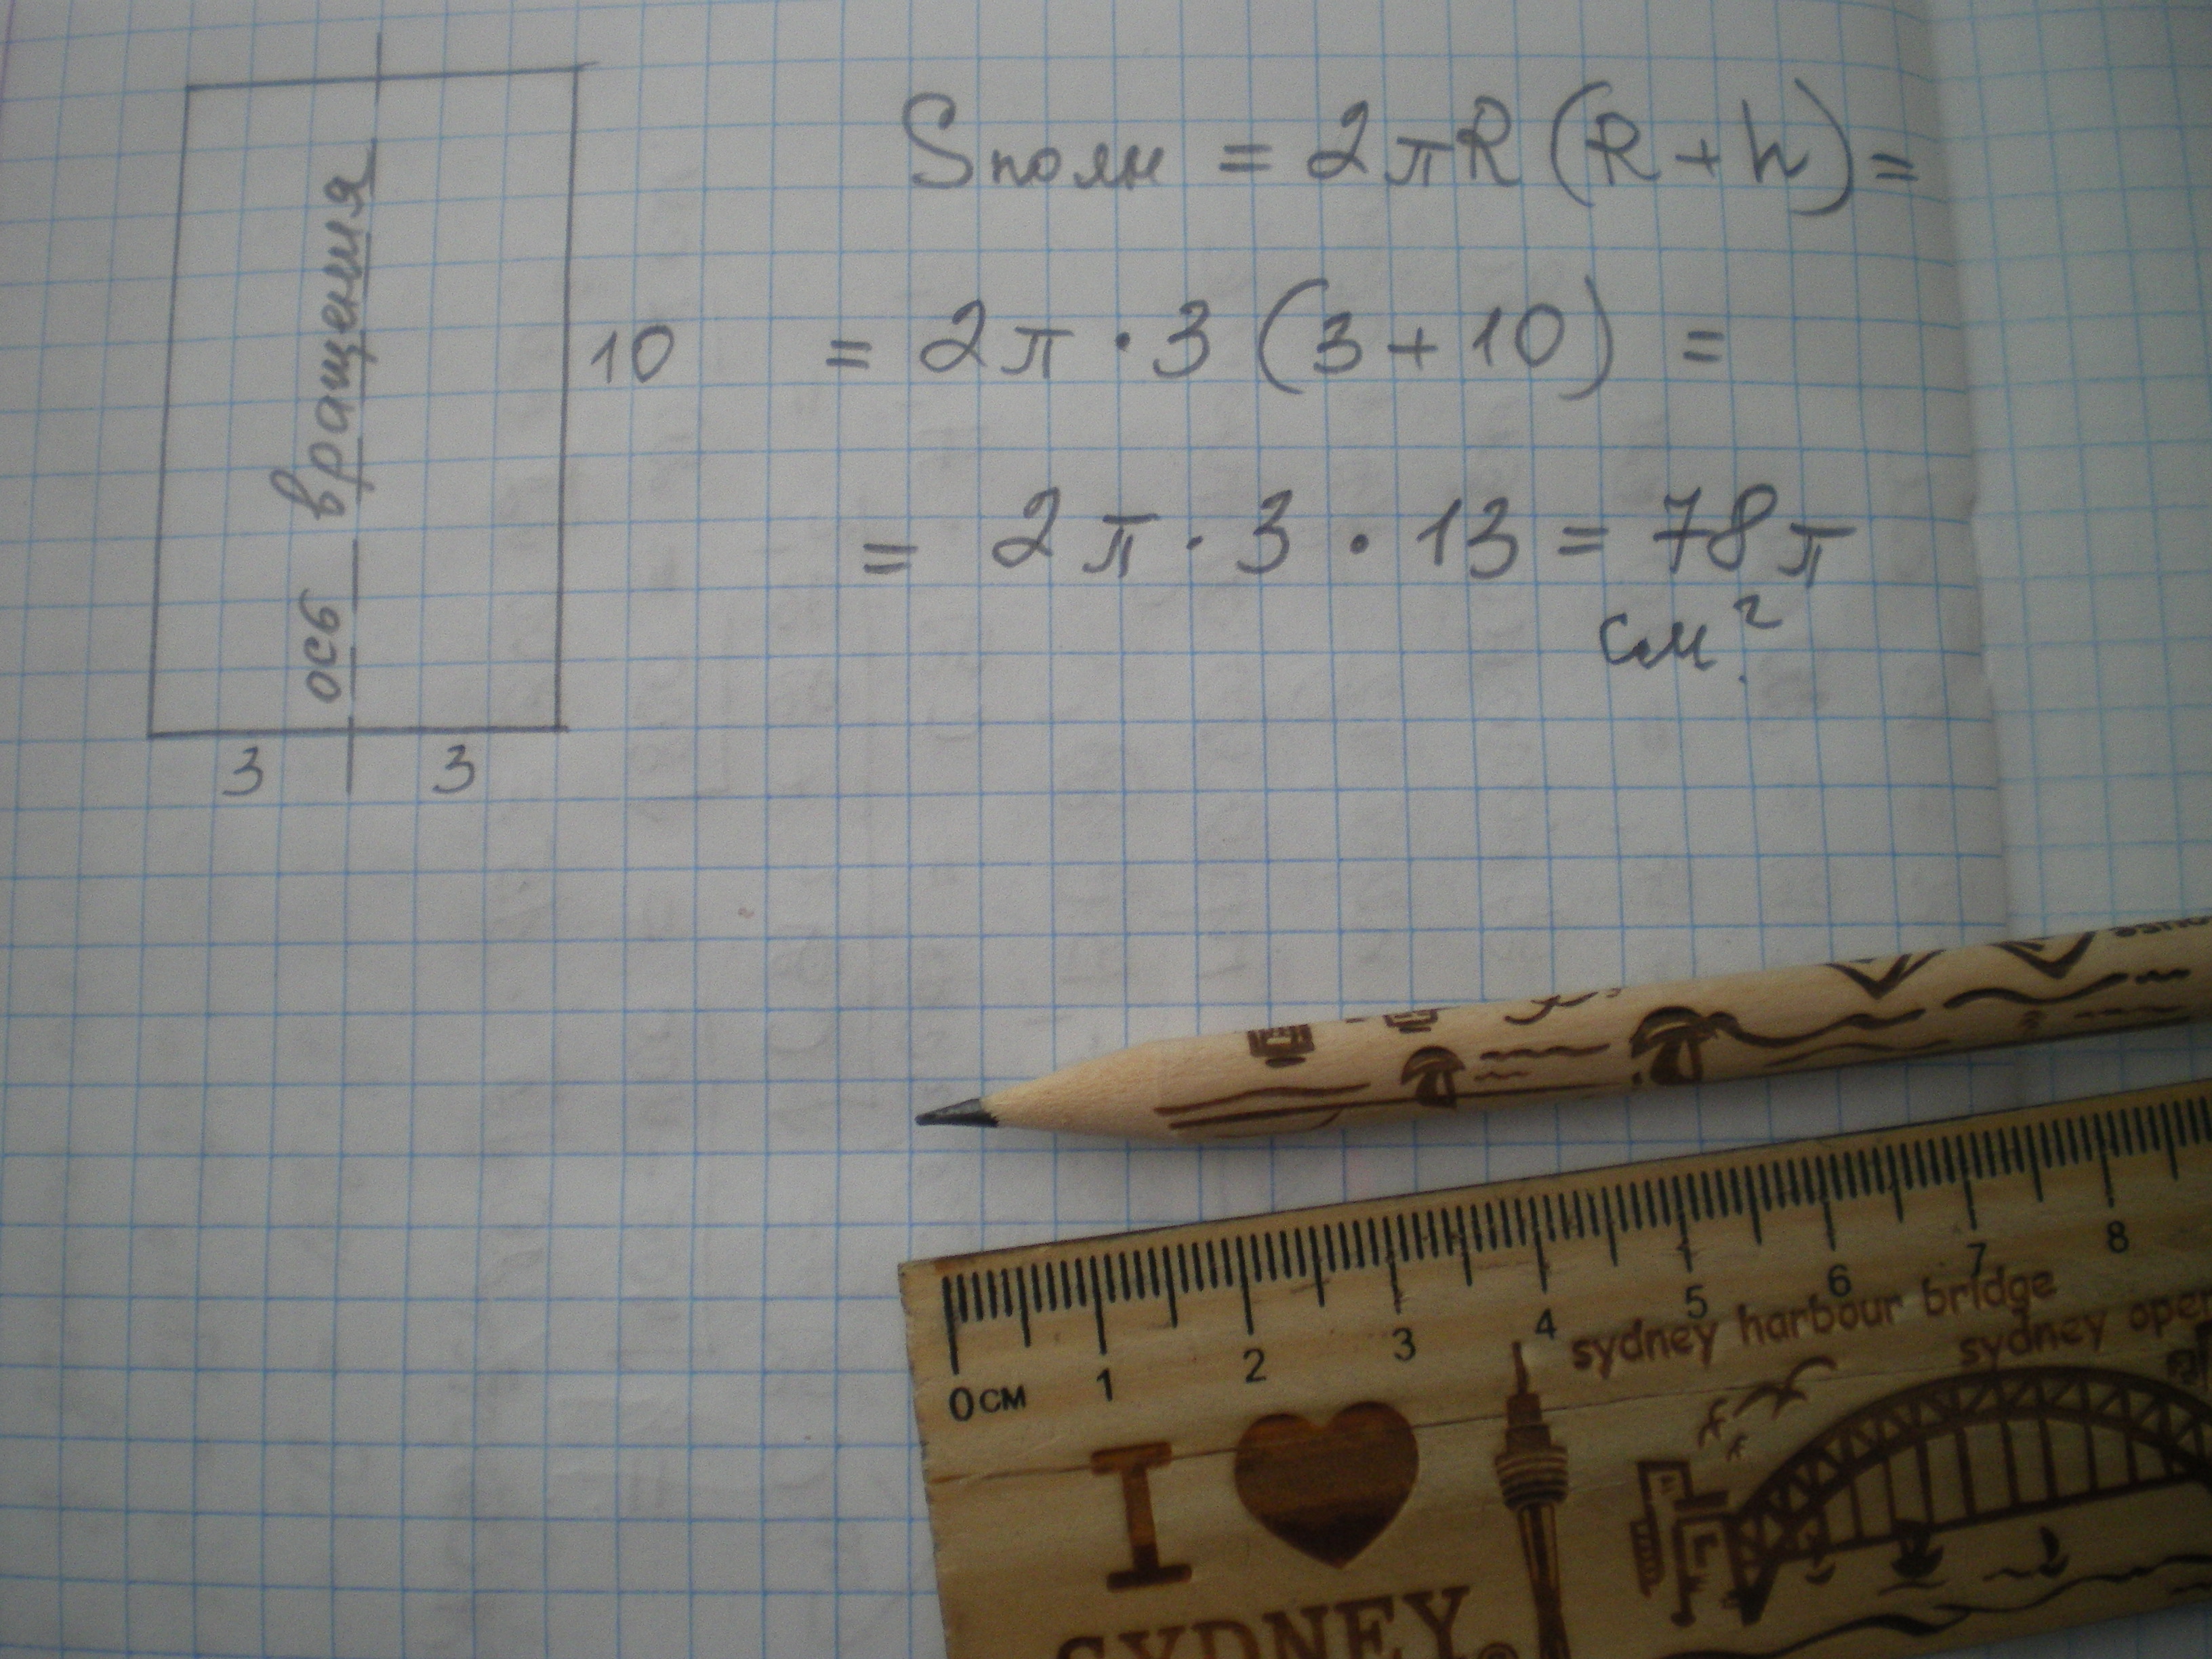 ось вращения
10
3 3
Sполн = 2πR (R + h) =
= 2π · 3 (3 + 10) =
= 2π · 3 · 13 = 78π
см².
0см 1 2 3 4 5 6 7 8
sydney harbour bridge
sydney oper
I
SYDNEY